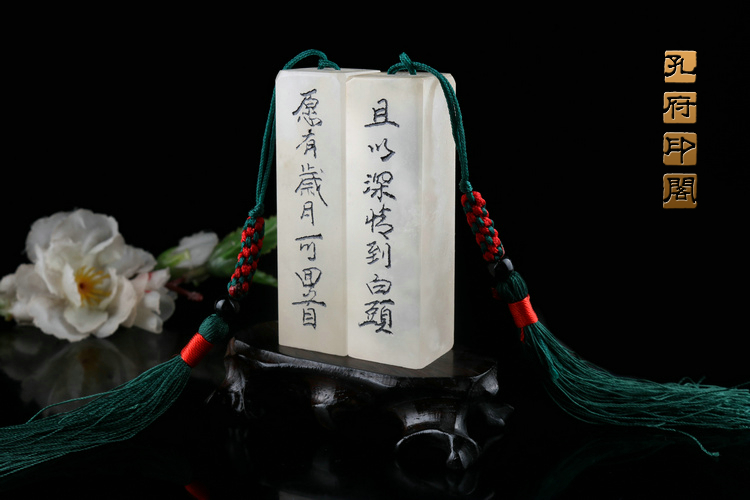 愿有歲月可回首
且以深情到白頭
孔府印閣